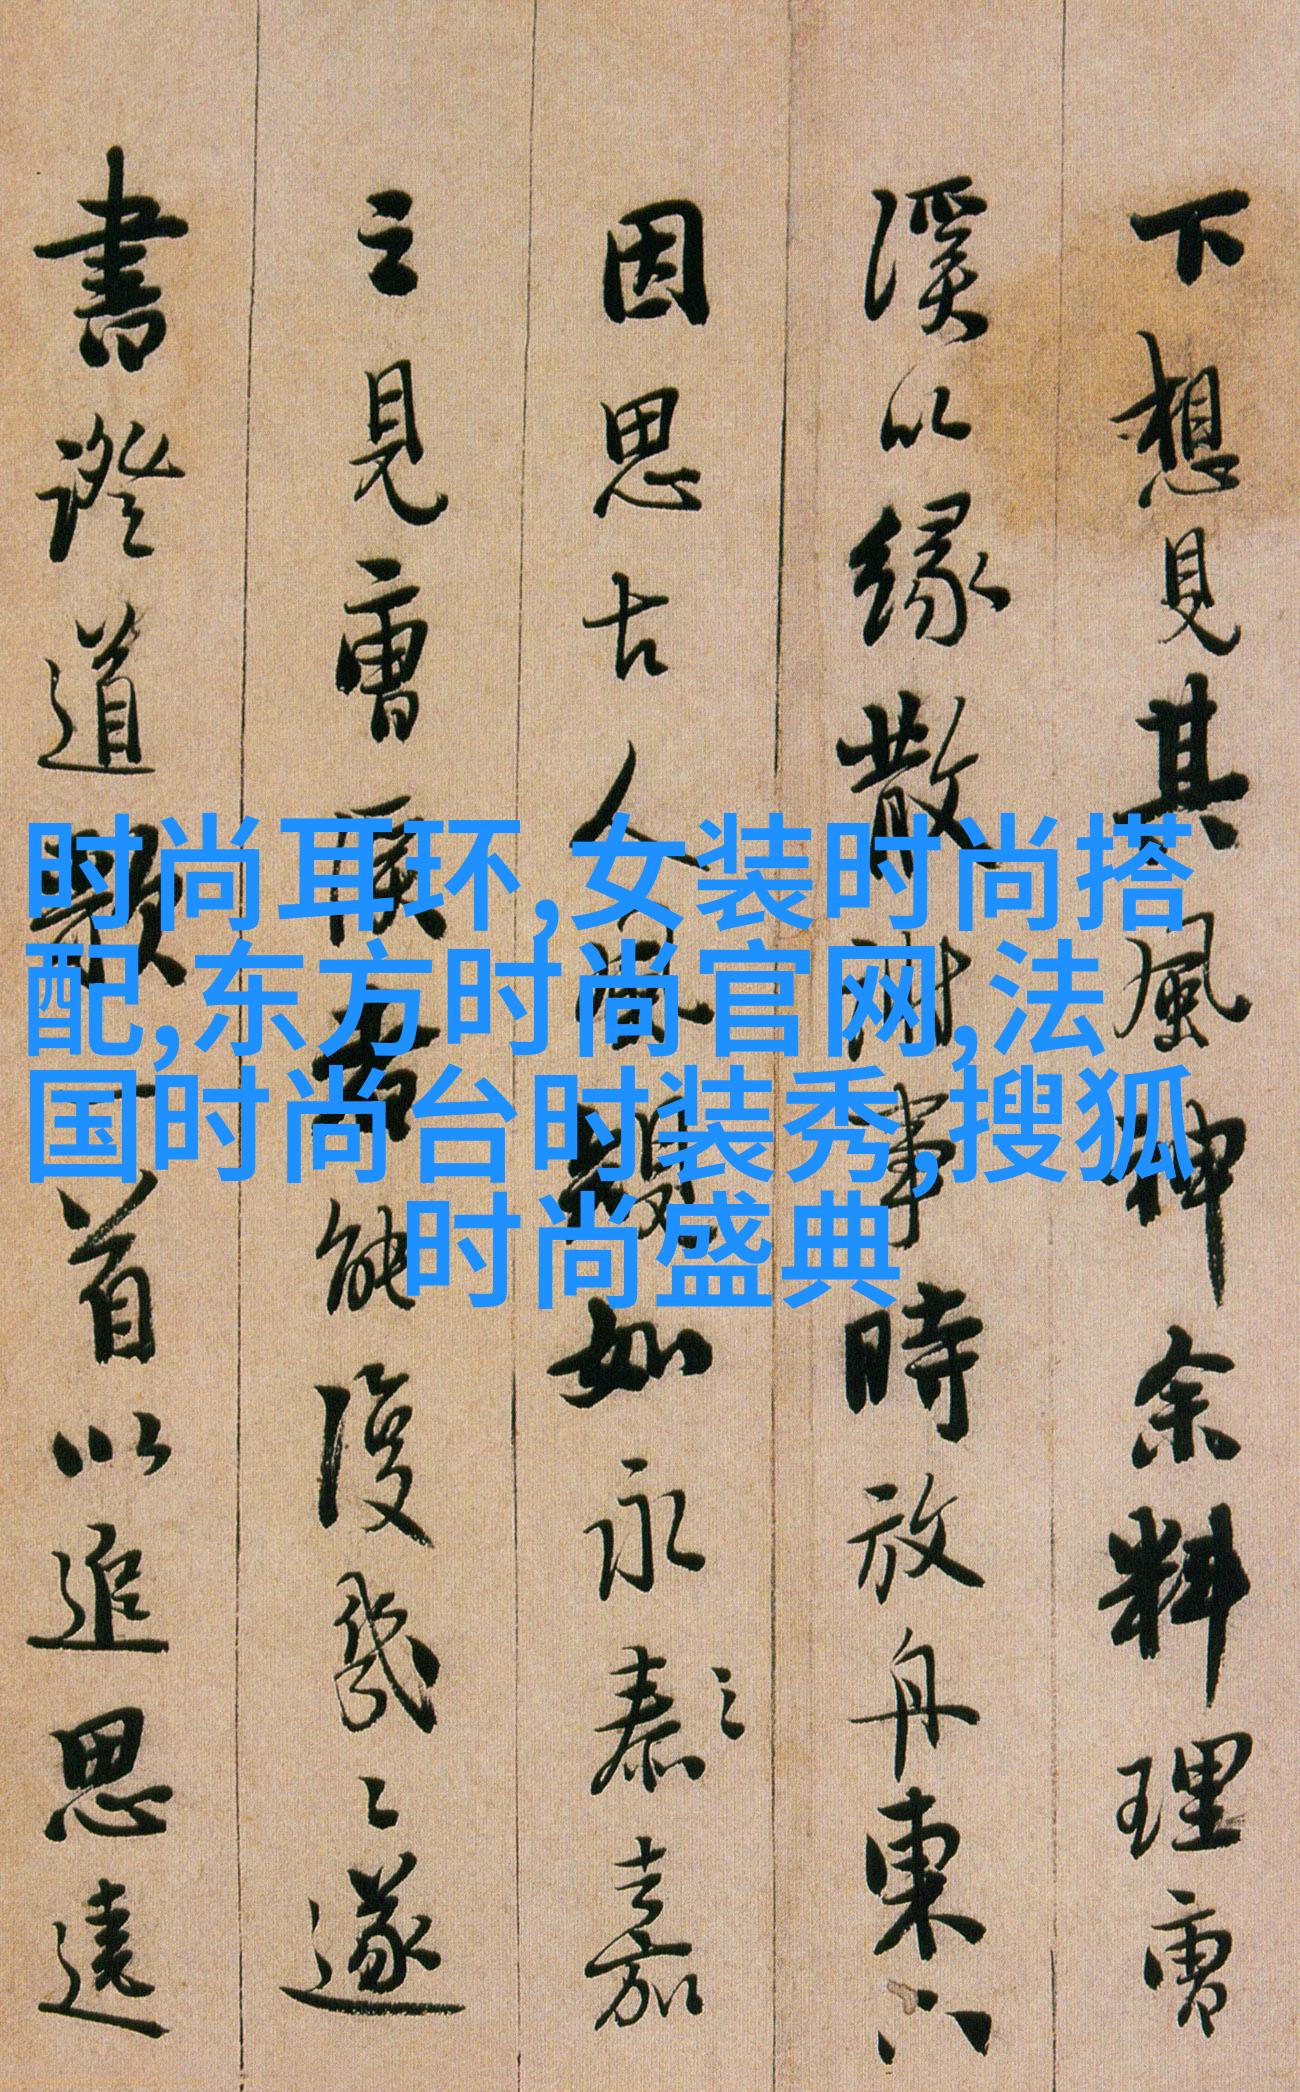 下想見其風神余料理曹
溪以緣散事時放舟東
因思古人風如永泰嘉
之見曹侯者能復幾遂
書證道歌一首以追思遠
时尚耳环,女装时尚搭
配,东方时尚官网,法
国时尚台时装秀,搜狐
时尚盛典